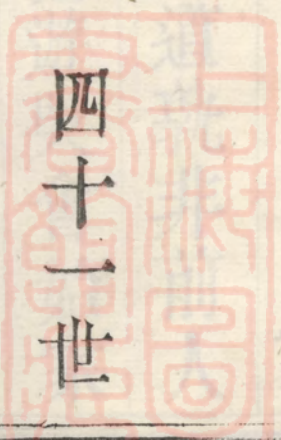 四十一世
上海圖
書館藏